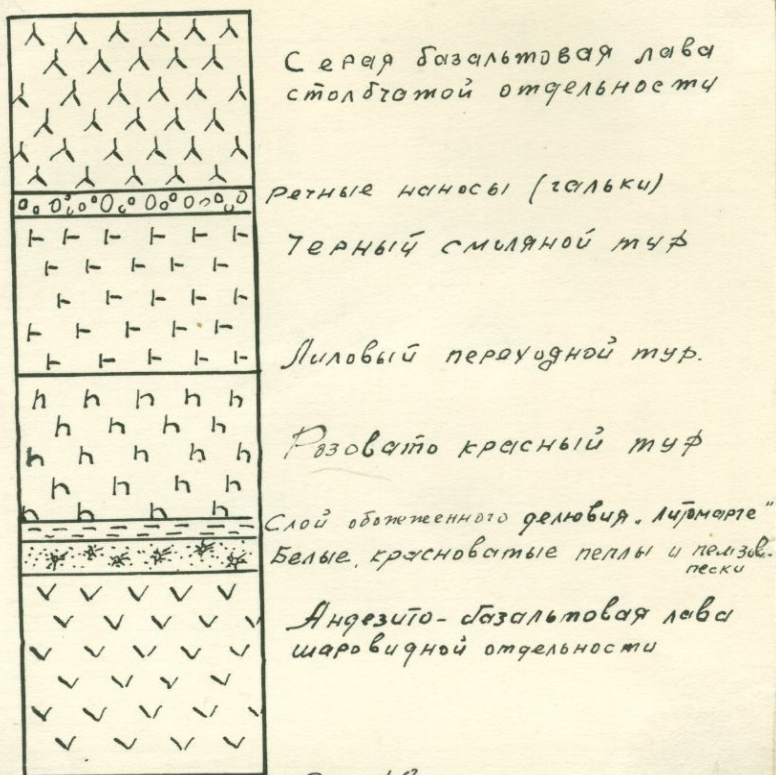 Серая базальтовая лава
столбчатой отдельности
Речные наносы (гальки)
Черный смиляной туф
Лиловый переходной туф.
Розовато красный туф
Слой обожженного делювия „Литомарге"
Белые, красноватые пеплы и пемзов.
пески
Андезито-базальтовая лава
шаровидной отдельности